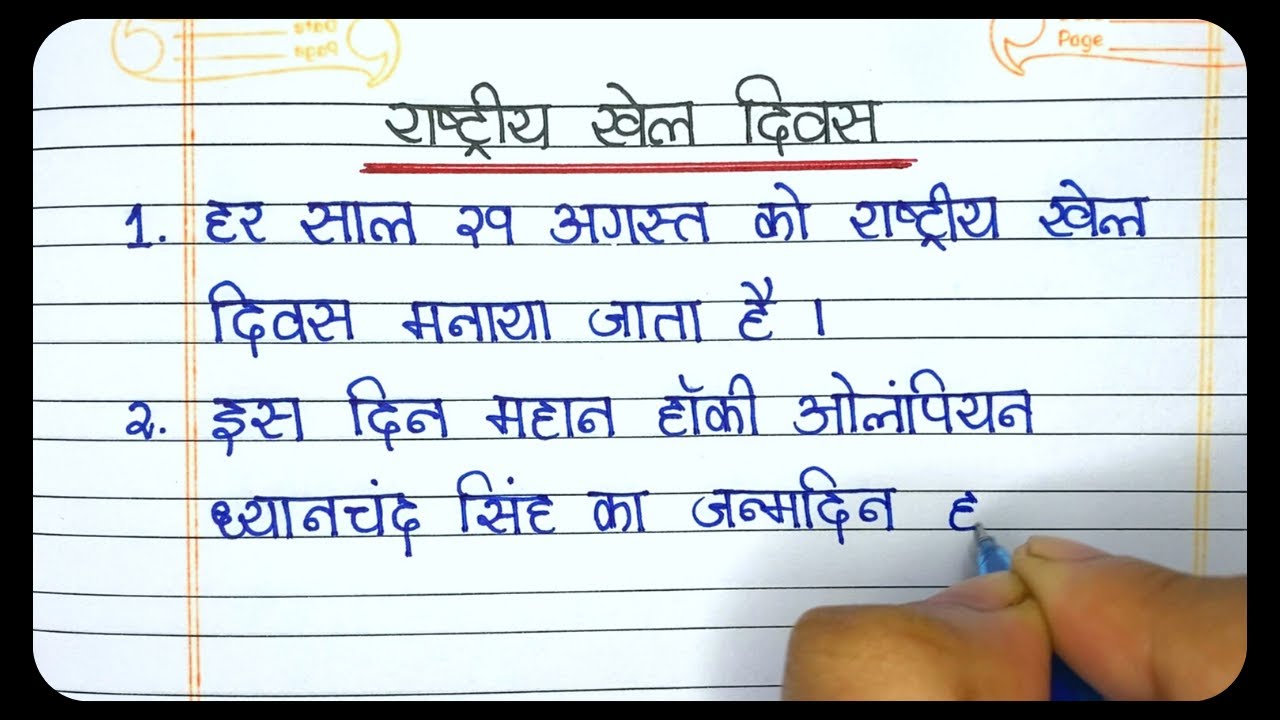 Page
राष्ट्रीय खेल दिवस
1. हर साल २९ अगस्त को राष्ट्रीय खेल
दिवस मनाया जाता है ।
२. इस दिन महान हॉकी ओलंपियन
ध्यानचंद सिंह का जन्मदिन ह